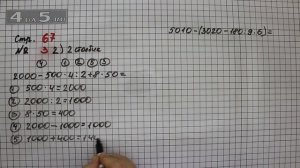 Стр. 67
№ 3 2) 2 столбик
④ ① ② ⑤ ③
2000 - 500 · 4 : 2 + 8 · 50 =
① 500 · 4 = 2000
② 2000 : 2 = 1000
③ 8 · 50 = 400
④ 2000 - 1000 = 1000
⑤ 1000 + 400 = 14
5010 - (3020 - 180 · 9 : 6) =